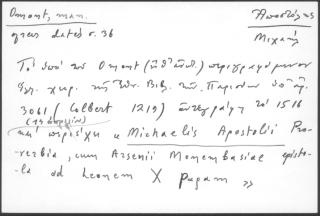 Omont, man.
grecs datés s. 36
Ἀποστόλης
Μιχαήλ
Τὸ ὑπὸ τοῦ Omont περιγραφόμενον
χειρ. τῆς Ἐθν. Βιβ. τῶν Παρισίων
3061 (Colbert 1219) ἀντεγράφη τὸ 1516
καὶ περιέχει « Michaelis Apostolii Pro-
verbia, cum Arsenii Monembasiae episto-
la ad Leonem X papam »